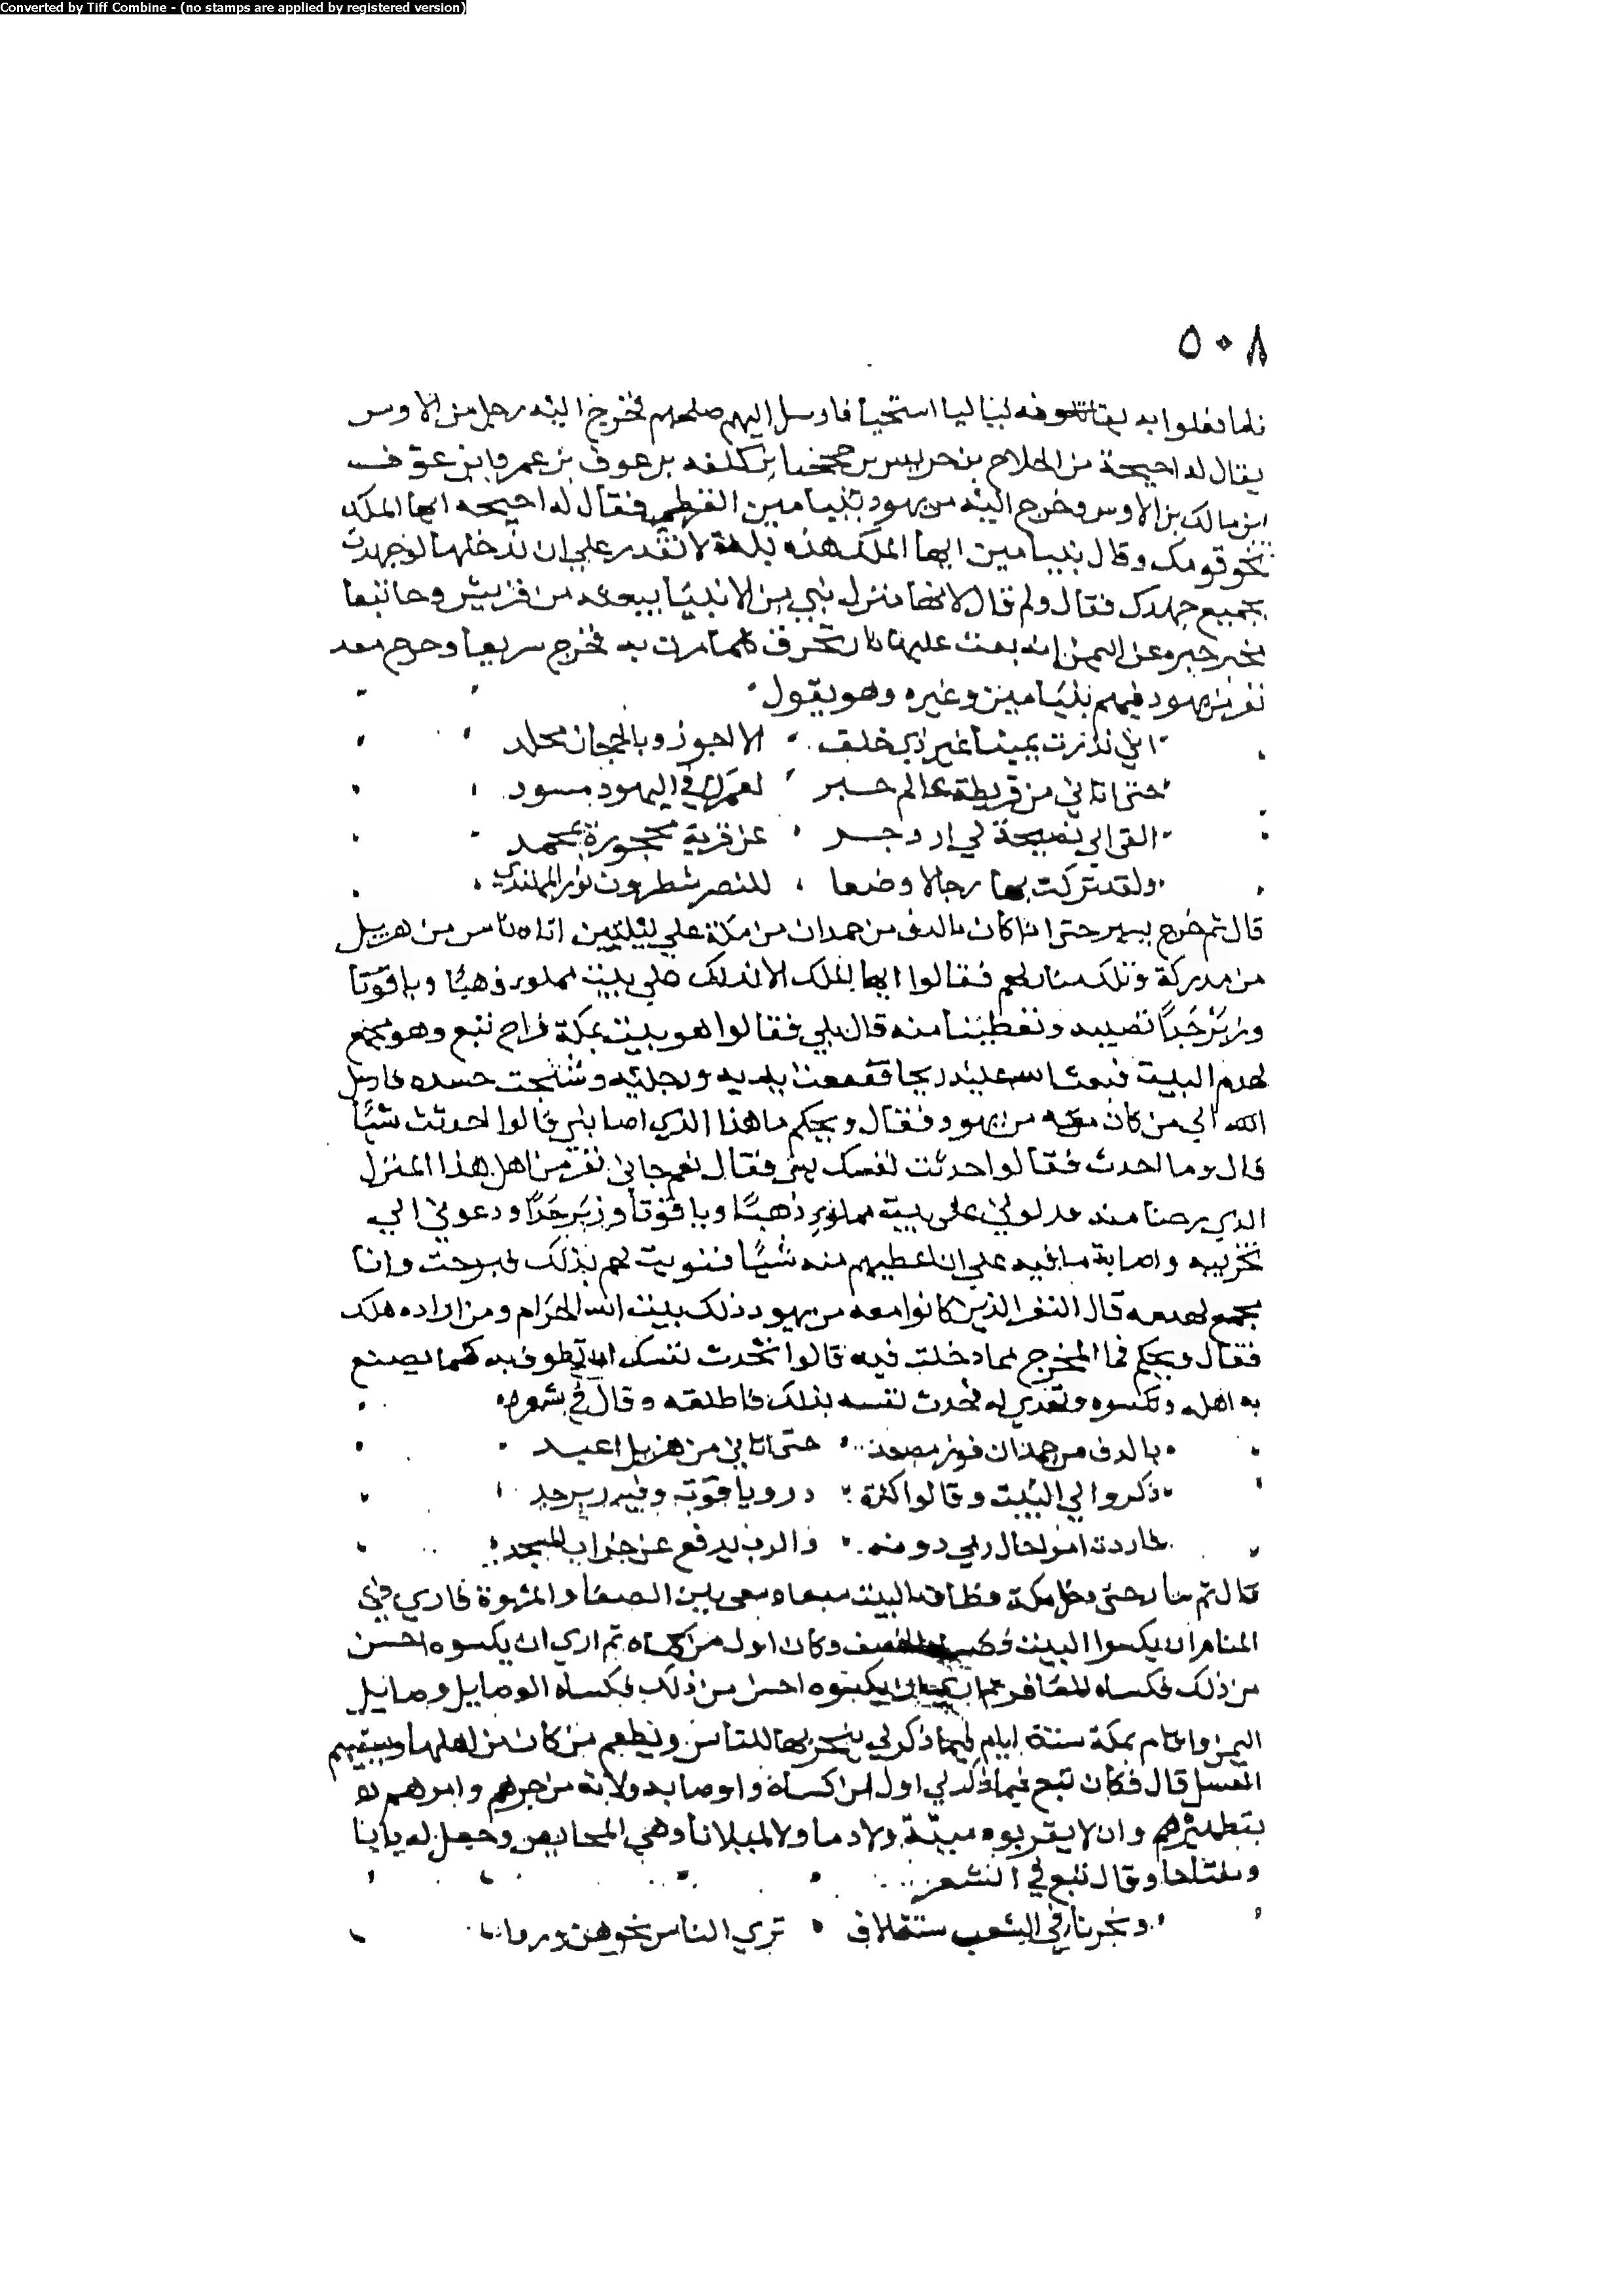 Converted by Tiff Combine - (no stamps are applied by registered version)
٥٠٨
فلما فعلوا به ليالي استحيا فارسل اليهم صلحهم فخرج اليه رجل من الاوس
يقال له احيحة بن الحلاح بن حريس بن جحجبا بن كلفه بن عوف بن عمرو ابن عوف
ابن مالك بن الاوس وخرج اليه من يهود بنيامين القرظي فقال له احيحه ايها الملك
نحن قومك وقال بنيامين ايها الملك هذه بلدة لا تقدر علي ان تدخلها لو جهدت
بجميع جهدك فقال ولم قال لانها منزل نبي من الانبيا يبعثه من قريش وجا تبعا
مخبر خبره عن اليمن انه بعث عليها نار تحرق كلما مرت به فخرج سريعا وخرج معه
نفر من يهود فيهم بنيامين وغيره وهو يقول
اني نذرت يمينا غير ذي خلف الا اجوز وبالحجاز مخلد
حتى اتاني من قريظة عالم حبر لعمرك في اليهود مسود
القى الي نصيحة كي ازدجر عن قرية محجورة بمحمد
ولقد تركت بها رجالا وضعا للنصر ينتظرون نور المهتدي
قال ثم خرج يسير حتى اذا كان بالدف من جمدان من مكة علي ليلتين اتاه ناس من هذيل
من مدركة وتلك منازلهم فقالوا ايها الملك الا ندلك علي بيت مملوء ذهبا وياقوتا
وزبرجدا تصيبه وتعطينا منه قال بلي فقالوا هو بيت بمكة فراح تبع وهو مجمع
لهدم البيت فبعث الله عليه ريحا فقفعت يديه ورجليه وشنجت جسده فارسل
الله الي من كان معه من يهود فقال ويحكم ما هذا الذي اصابني قالوا احدثت شيا
قال وما احدث فقالوا احدثت نفسك بشي فقال نعم جاني نفر من اهل هذا المنزل
الذي رحنا منه فدلوني على بيت مملوء ذهبا وياقوتا وزبرجدا ودعوني الي
تخريبه واصابة ما فيه علي ان اعطيهم منه شيا فنويت لهم بذلك فرحت وانا
مجمع لهدمه قال النفر الذين كانوا معه من يهود ذلك بيت الله الحرام ومن اراده هلك
فقال ويحكم فما المخرج مما دخلت فيه قالوا تحدث نفسك ان تطوف به كما يصنع
به اهله وتكسوه وتهدي له فحدث نفسه بذلك فاطلقه وقال في شعره
بالدف من جمدان فوز مصعد حتى اتاني من هذيل اعبد
ذكروا لي البيت وقالوا كنزه در وياقوت وفيه زبرجد
فاردت امرا حال ربي دونه والرب يدفع عن خراب المسجد
قال ثم سار حتى دخل مكة فطاف بالبيت سبعا وسعى بين الصفا والمروة فاري في
المنام ان يكسوا البيت فكساه الخصف وكان اول من كساه ثم اري ان يكسوه احسن
من ذلك فكساه المعافر ثم اري ان يكسوه احسن من ذلك فكساه الوصايل وصايل
اليمن واقام بمكة ستة ايام فيما ذكر لي ينحر بها للناس ويطعم من كان من اهلها ويسقيهم
العسل قال فكان تبع فيما ذكر لي اول من كساه واوصا به ولاته من جرهم وامرهم
بتطهيره وان لا يقربوه ميتة ولا دما ولا ميلاثا وهي المحايض وجعل له بابا
ومفتاحا وقال تبع في الشعر
ونحرنا في الشعب ستة الاف ترى الناس نحوهن ورودا